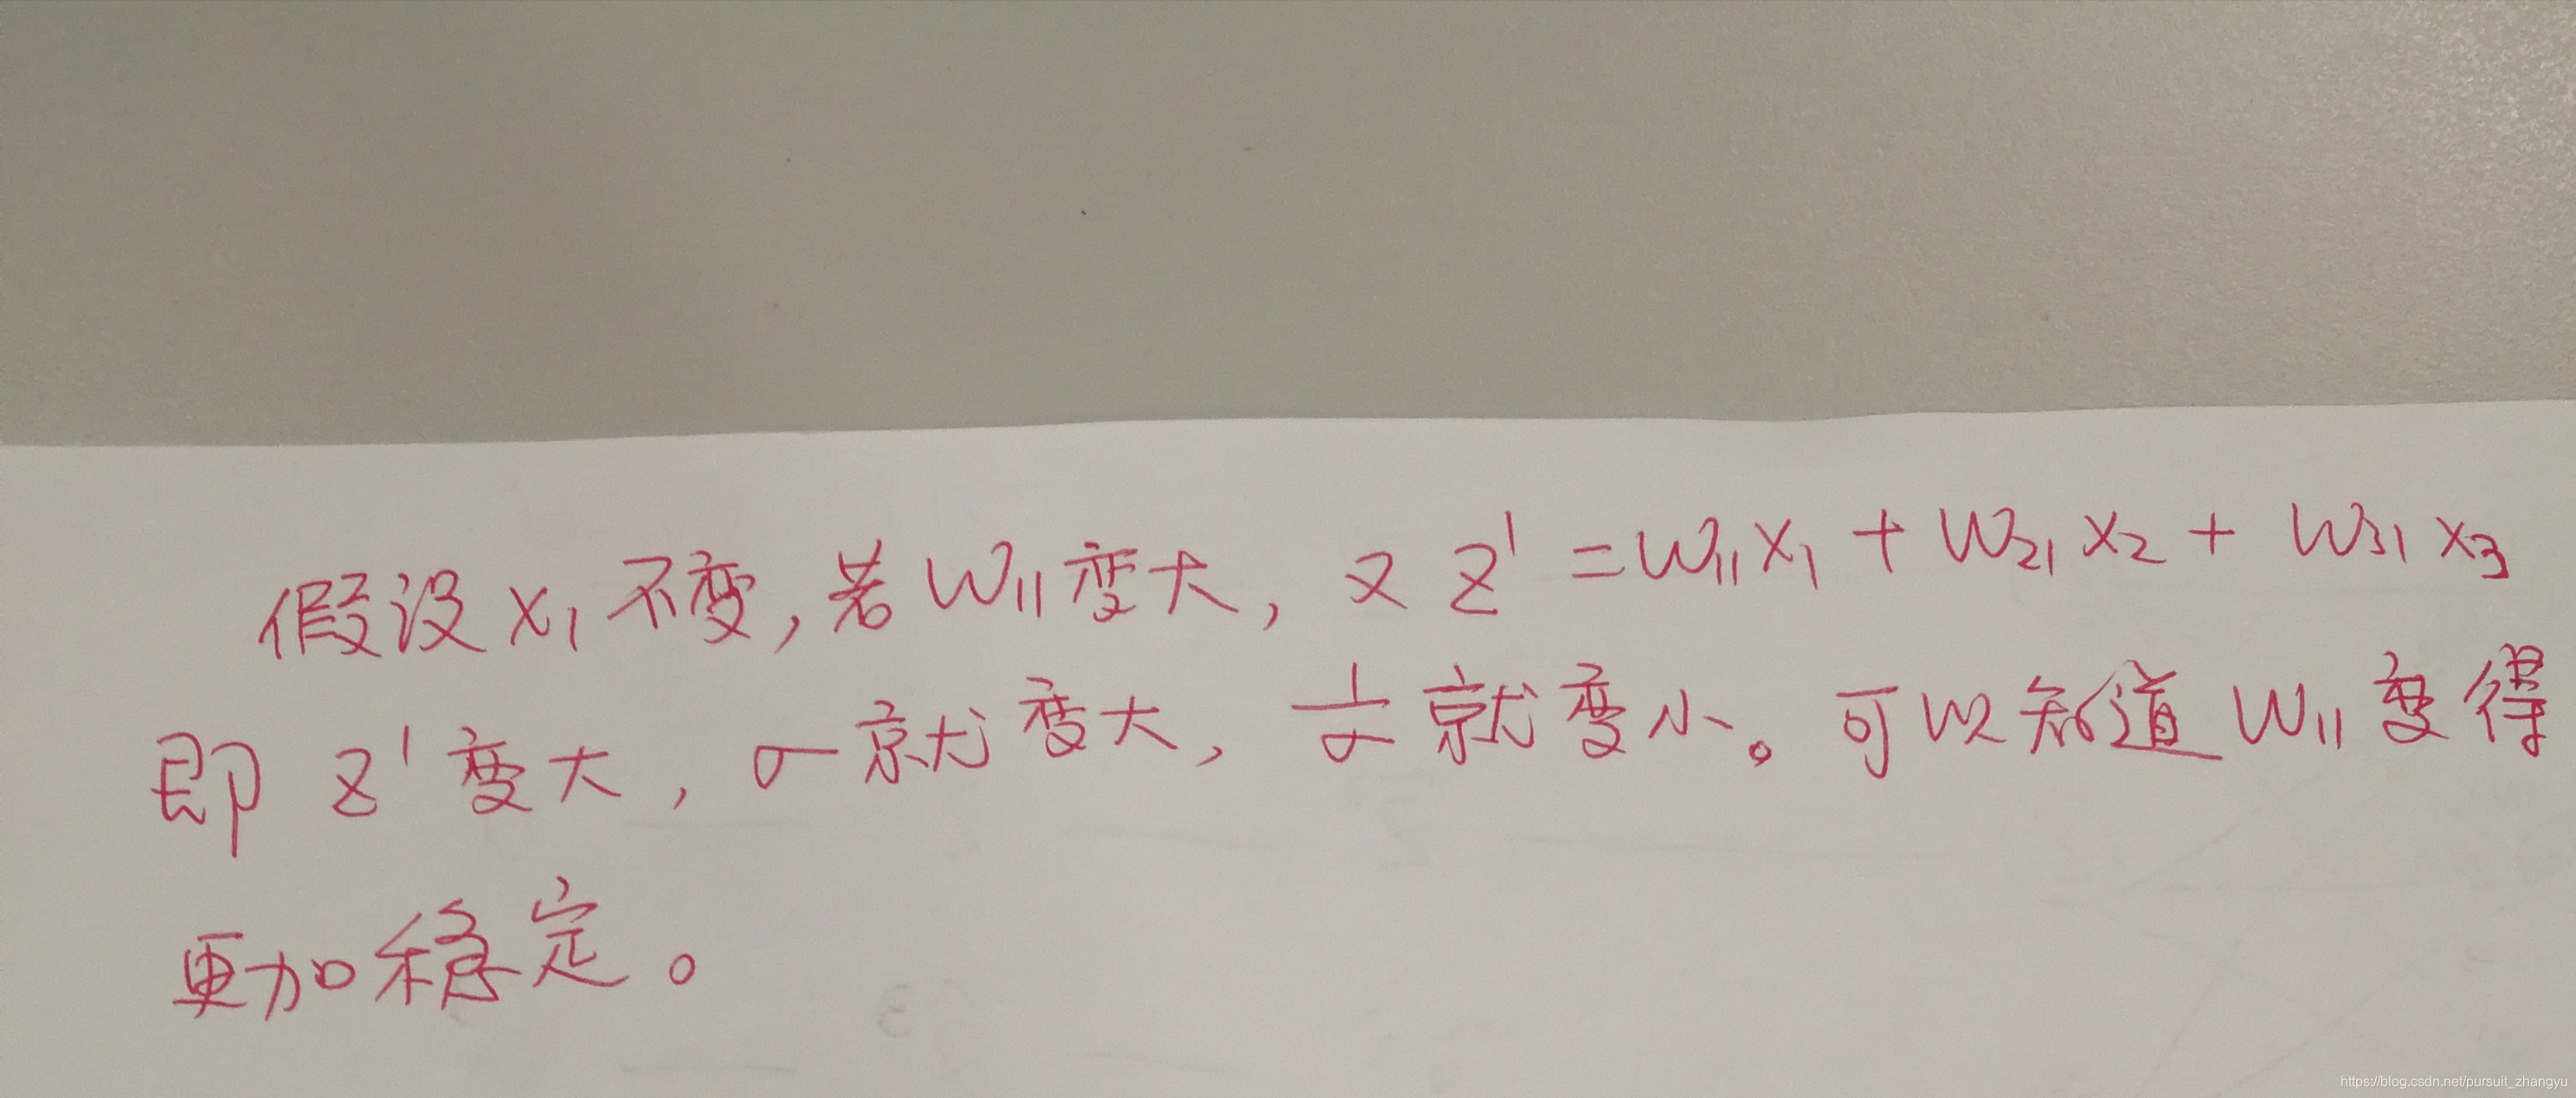 假设x₁不变,若W₁₁变大,又 Z¹=W₁₁x₁+W₂₁x₂+W₃₁x₃
即 Z¹变大,σ就变大,1/σ就变小。可以知道W₁₁变得
更加稳定。
https://blog.csdn.net/pursuit_zhangyu